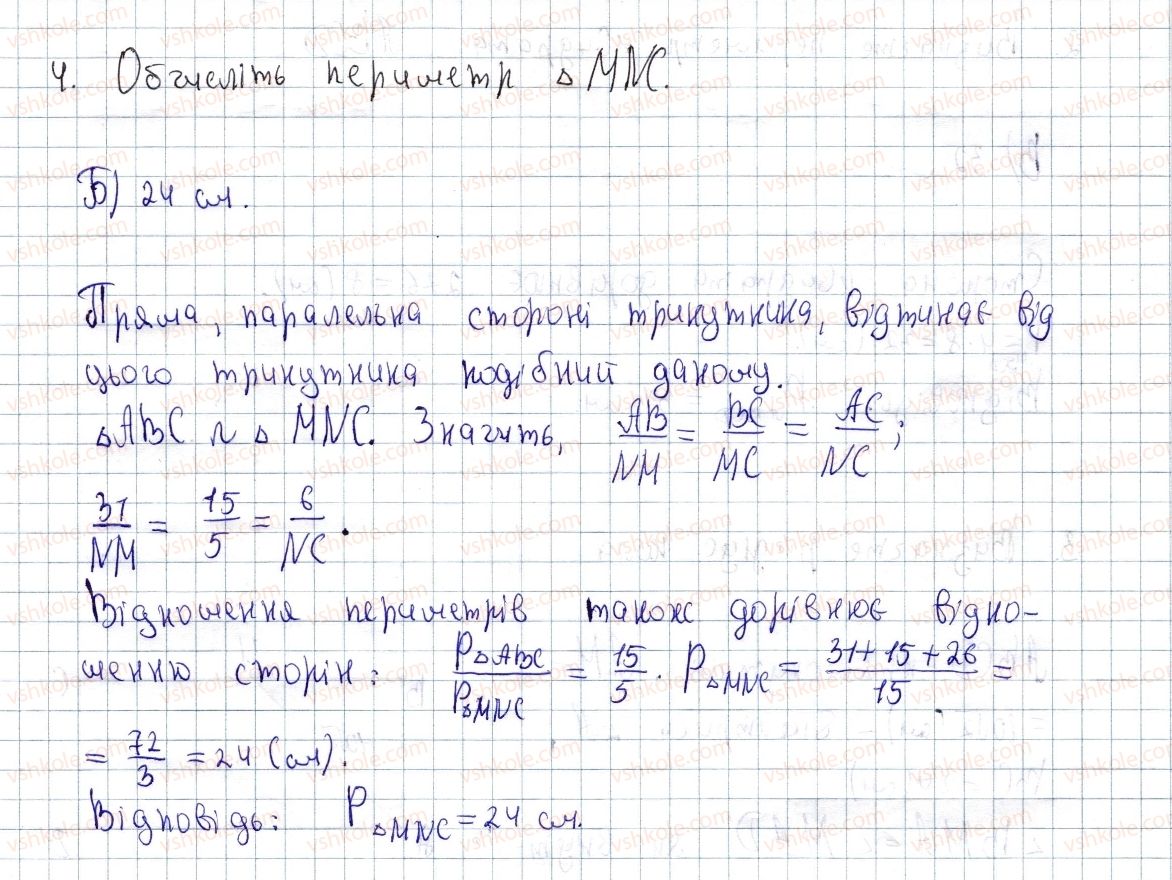 4. Обчисліть периметр △ MNC.
Б) 24 см.
Пряма, паралельна стороні трикутника, відтинає від
цього трикутника подібний даному.
△ABC ~ △ MNC. Значить, AB/NM = BC/MC = AC/NC;
31/NM = 15/5 = 6/NC.
Відношення периметрів також дорівнює відно-
шенню сторін: P△ABC/P△MNC = 15/5. P△MNC = (31+15+26)/15 =
= 72/3 = 24 (см).
Відповідь: P△MNC = 24 см.
vshkole.com